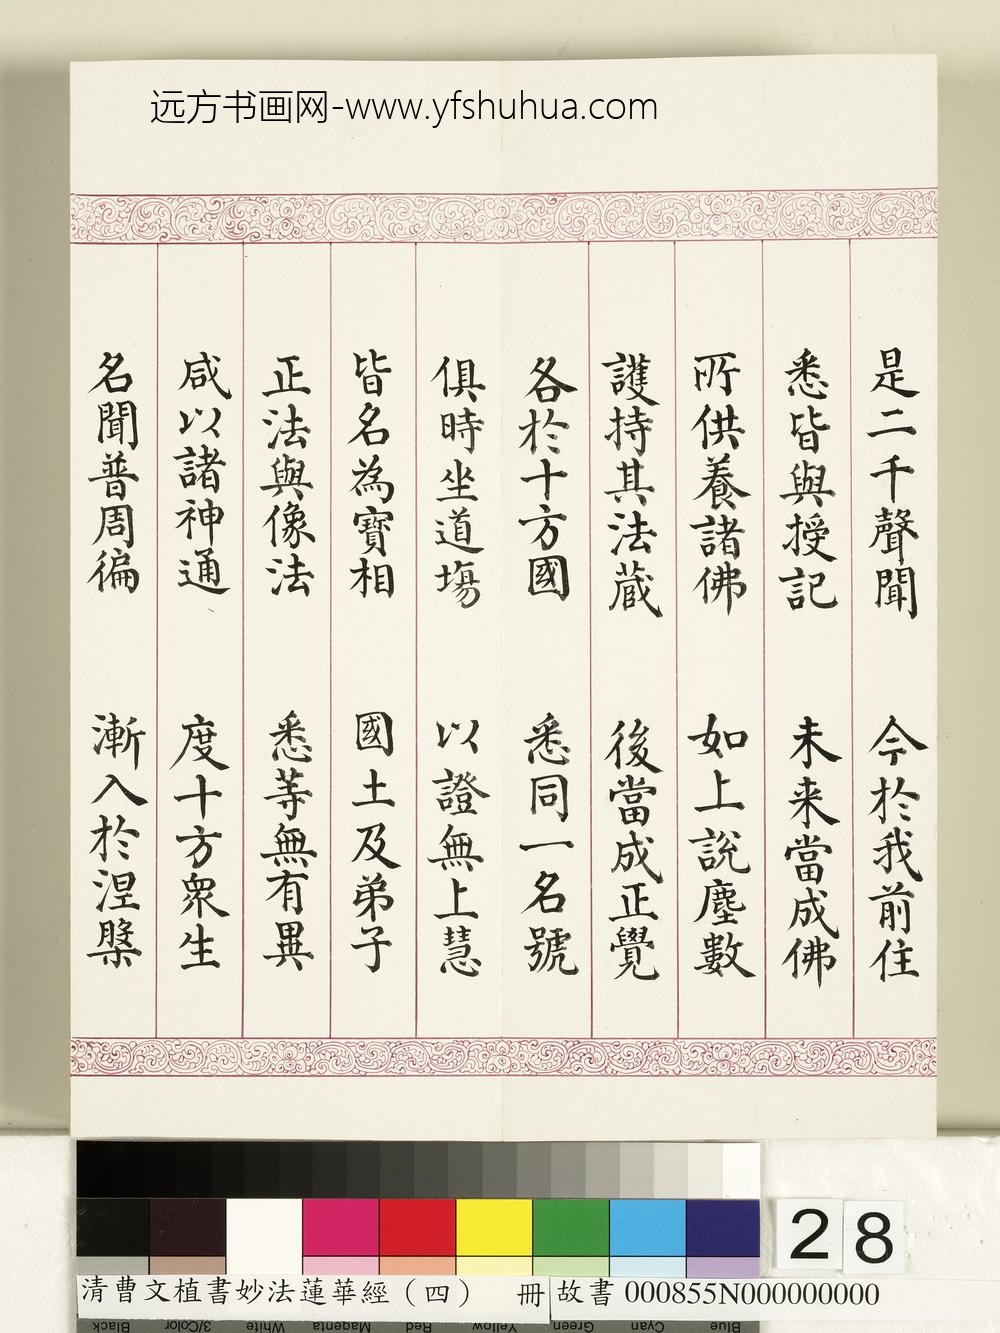 远方书画网-www.yfshuhua.com
是二千聲聞 今於我前住
悉皆與授記 未来當成佛
所供養諸佛 如上說塵數
護持其法蔵 後當成正覺
各於十方國 悉同一名號
俱時坐道場 以證無上慧
皆名為寶相 國土及弟子
正法與像法 悉等無有異
咸以諸神通 度十方衆生
名聞普周徧 漸入於涅槃
28
清曹文植書妙法蓮華經（四） 冊 故書 000855N000000000
Black 3/Color White Magenta Red Yellow Green Cyan Blue